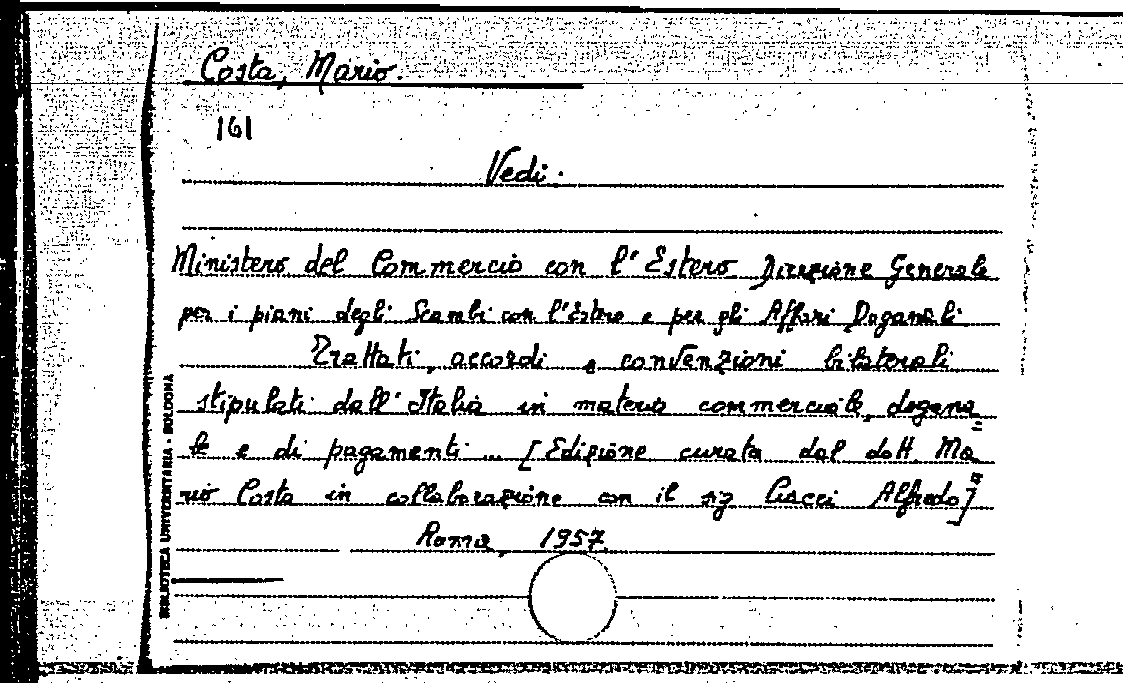 Costa, Mario.
161
Vedi:
Ministero del Commercio con l'Estero Direzione Generale
per i piani degli Scambi con l'Estero e per gli Affari Doganali
Trattati, accordi e convenzioni bilaterali
stipulati dall'Italia in materia commerciale, dogana=
le e di pagamenti ... [Edizione curata dal dott. Ma
rio Costa in collaborazione con il sig Ciacci Alfredo]
Roma, 1957.
BIBLIOTECA UNIVERSITARIA - BOLOGNA